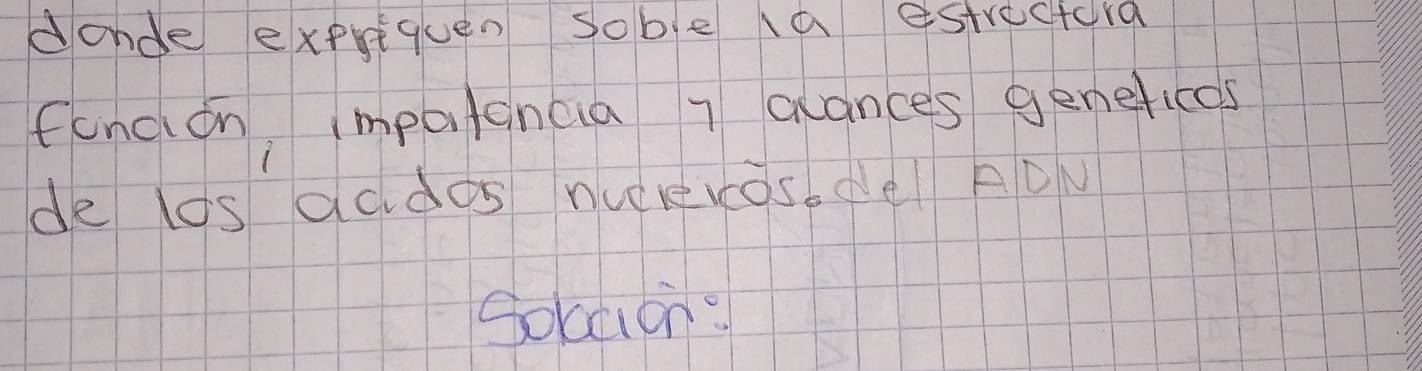 donde expliquen sobre la estructura
función, importancia y avances geneticos
de los acidos nucleicos. del ADN
Solución: